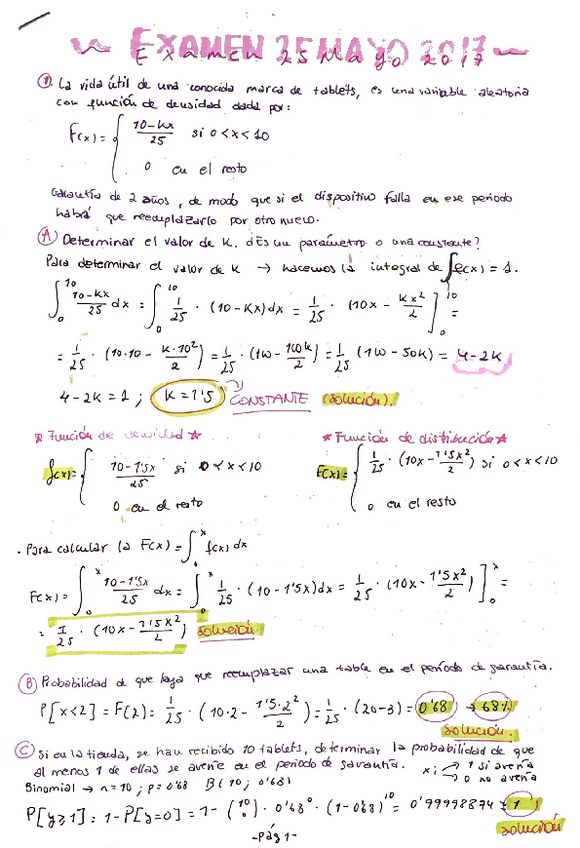 ~ EXAMEN 25 MAYO 2017 ~
① La vida útil de una conocida marca de tablets, es una variable aleatoria
con función de densidad dada por:
F(x) = { 10-Kx/25 si 0<x<10
0 en el resto
Garantía de 2 años, de modo que si el dispositivo falla en ese periodo
habrá que reemplazarlo por otro nuevo.
Ⓐ Determinar el valor de K. ¿Es un parámetro o una constante?
Para determinar el valor de K → hacemos la integral de ∫f(x) = 1.
∫₀¹⁰ 10-Kx/25 dx = ∫₀¹⁰ 1/25 · (10-Kx)dx = 1/25 · (10x - Kx²/2]₀¹⁰ =
= 1/25 · (10·10 - K·10²/2) = 1/25 · (100 - 100K/2) = 1/25 (100 - 50K) = 4-2K
4-2K = 1 ; K = 1'5 CONSTANTE (solución).
★ Función de densidad ★
f(x) = { 10-1'5x/25 si 0<x<10
0 en el resto
★ Función de distribución ★
F(x) = { 1/25 · (10x - 1'5x²/2) si 0<x<10
0 en el resto
· Para calcular la F(x) = ∫ˣ f(x) dx
F(x) = ∫₀ˣ 10-1'5x/25 dx = ∫₀ˣ 1/25 · (10-1'5x)dx = 1/25 · (10x - 1'5x²/2)]₀ˣ =
= 1/25 · (10x - 1'5x²/2) solución
Ⓑ Probabilidad de que haya que reemplazar una table en el período de garantía.
P[x<2] = F(2) = 1/25 · (10·2 - 1'5·2²/2) = 1/25 · (20-3) = 0'68 → 68%
solución.
Ⓒ Si en la tienda, se han recibido 10 tablets, determinar la probabilidad de que
al menos 1 de ellas se averíe en el periodo de garantía. xi → 1 si avería
→ 0 no avería
Binomial → n=10; p=0'68 B(10; 0'68)
P[y≥1] = 1-P[y=0] = 1 - (10 0) · 0'68⁰ · (1-0'68)¹⁰ = 0'99998874 ≈ 1
solución
-Pág 1-